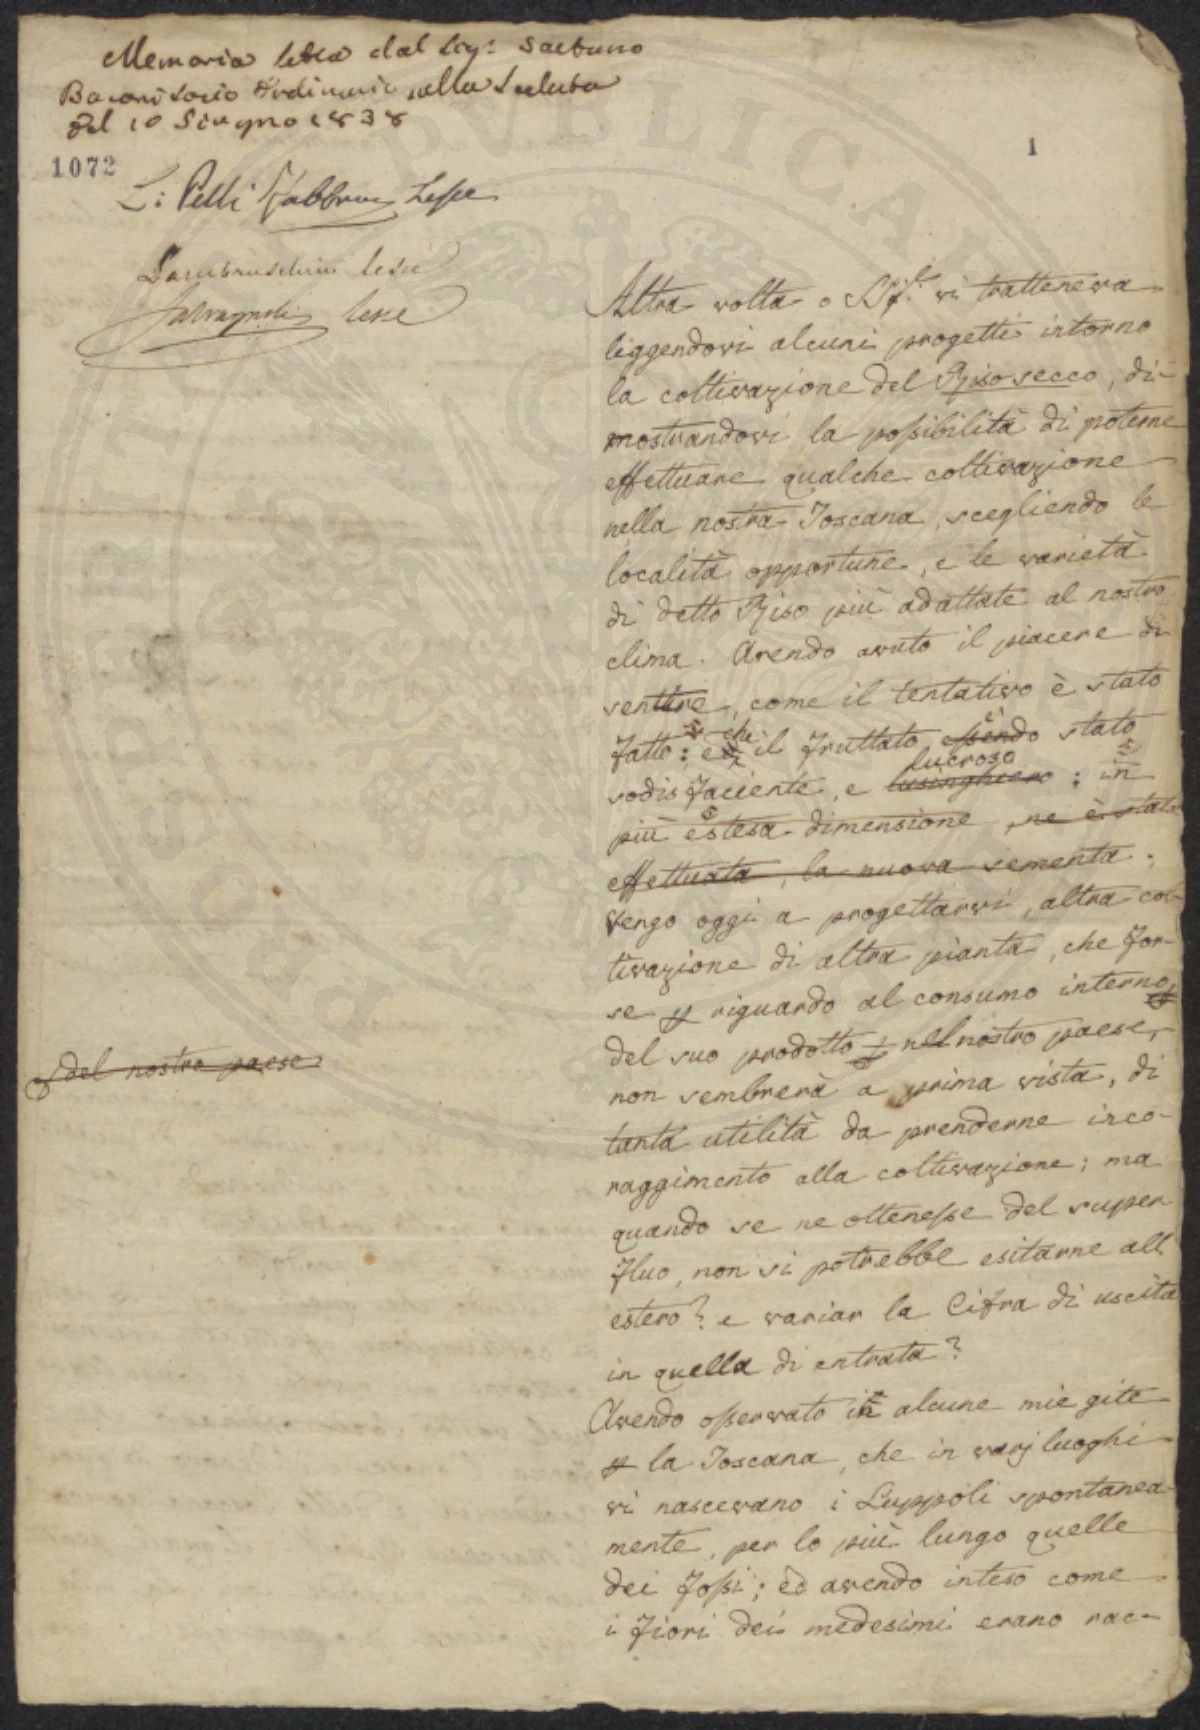 Memoria letta dal Sig.r Gaetano
Baroni Socio Ordinario nella Seduta
del 10 Giugno 1838
1072
1
L: Pelli Fabbroni Lesse
Lambruschini lesse
Salvagnoli lesse
Altra volta o SS.ri vi tratteneva
leggendovi alcuni progetti intorno
la coltivazione del Riso secco, di-
mostrandovi la possibilità di poterne
effettuare qualche coltivazione
nella nostra Toscana, scegliendo le
località opportune, e le varietà
di detto Riso più adattate al nostro
clima. Avendo avuto il piacere di
sentire, come il tentativo è stato
fatto: e che il fruttato essendo è stato
sodisfaciente, e lusinghiero lucroso: in
più estesa dimensione, ne è stata
effettuata, la nuova sementa.
Vengo oggi a progettarvi, altra col-
tivazione di altra pianta, che for-
se p riguardo al consumo interno
del suo prodotto nel nostro paese,
del nostro paese
non sembrerà a prima vista, di
tanta utilità da prenderne inco-
raggimento alla coltivazione; ma
quando se ne ottenesse del super
fluo, non si potrebbe esitarne all
estero? e variar la Cifra di uscita
in quella di entrata?
Avendo osservato in alcune mie gite
p la Toscana, che in varj luoghi
vi nascevano i Luppoli spontanea-
mente, per lo più lungo quelle
dei fossi; ed avendo inteso come
i fiori dei medesimi erano rac-